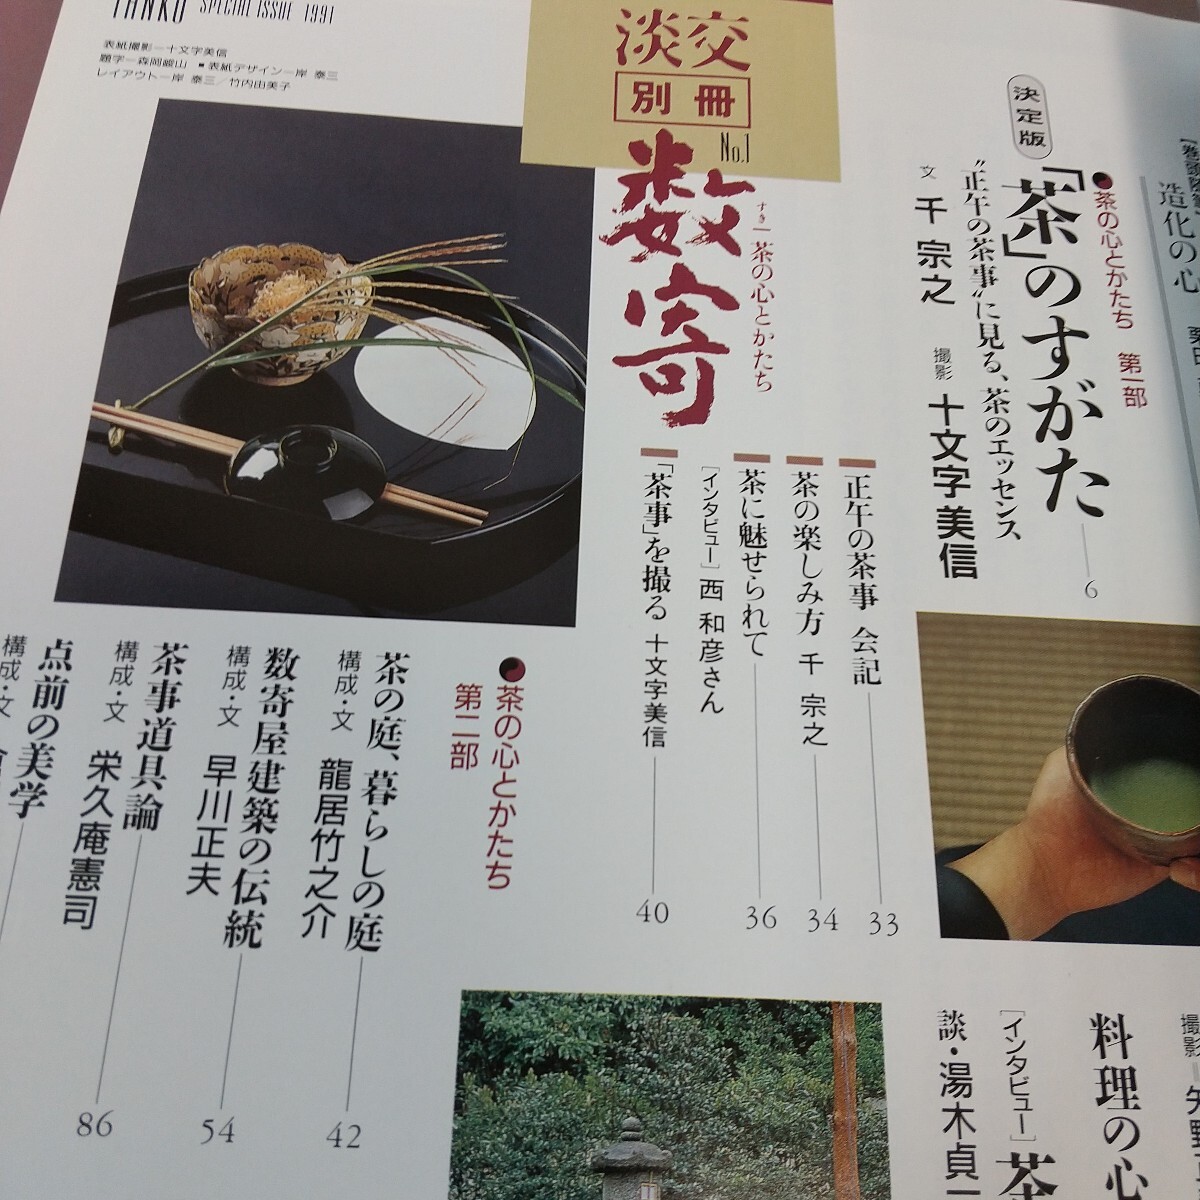 TANKO SPECIAL ISSUE 1991
表紙撮影—十文字美信
題字—森岡峻山 ■表紙デザイン—岸 泰三
レイアウト—岸 泰三／竹内由美子
淡交
別冊
No.1
数寄
すき—茶の心とかたち
造化の心
決定版
●茶の心とかたち 第一部
「茶」のすがた 6
“正午の茶事”に見る、茶のエッセンス
文 千 宗之 撮影 十文字美信
正午の茶事 会記 33
茶の楽しみ方 千 宗之 34
茶に魅せられて 36
［インタビュー］西 和彦さん
「茶事」を撮る 十文字美信 40
●茶の心とかたち
第二部
茶の庭、暮らしの庭 42
構成・文 龍居竹之介
数寄屋建築の伝統 54
構成・文 早川正夫
茶事道具論 86
構成・文 栄久庵憲司
点前の美学
構成・文
料理の心
［インタビュー］茶
談・湯木貞一